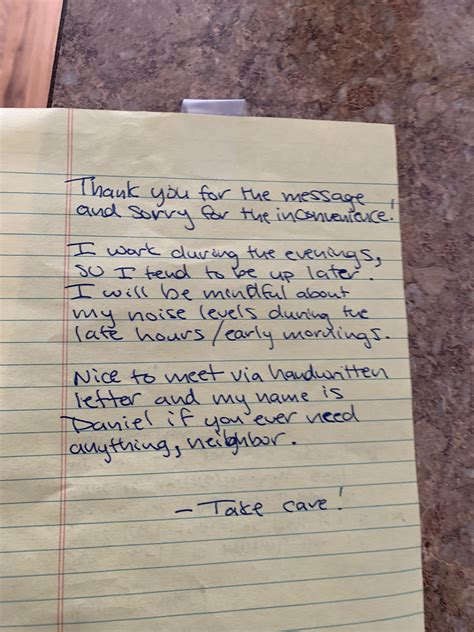 Thank you for the message
and sorry for the inconvenience!
I work during the evenings,
so I tend to be up later.
I will be mindful about
my noise levels during the
late hours/early mornings.
Nice to meet via handwritten
letter and my name is
Daniel if you ever need
anything, neighbor.
- Take care!